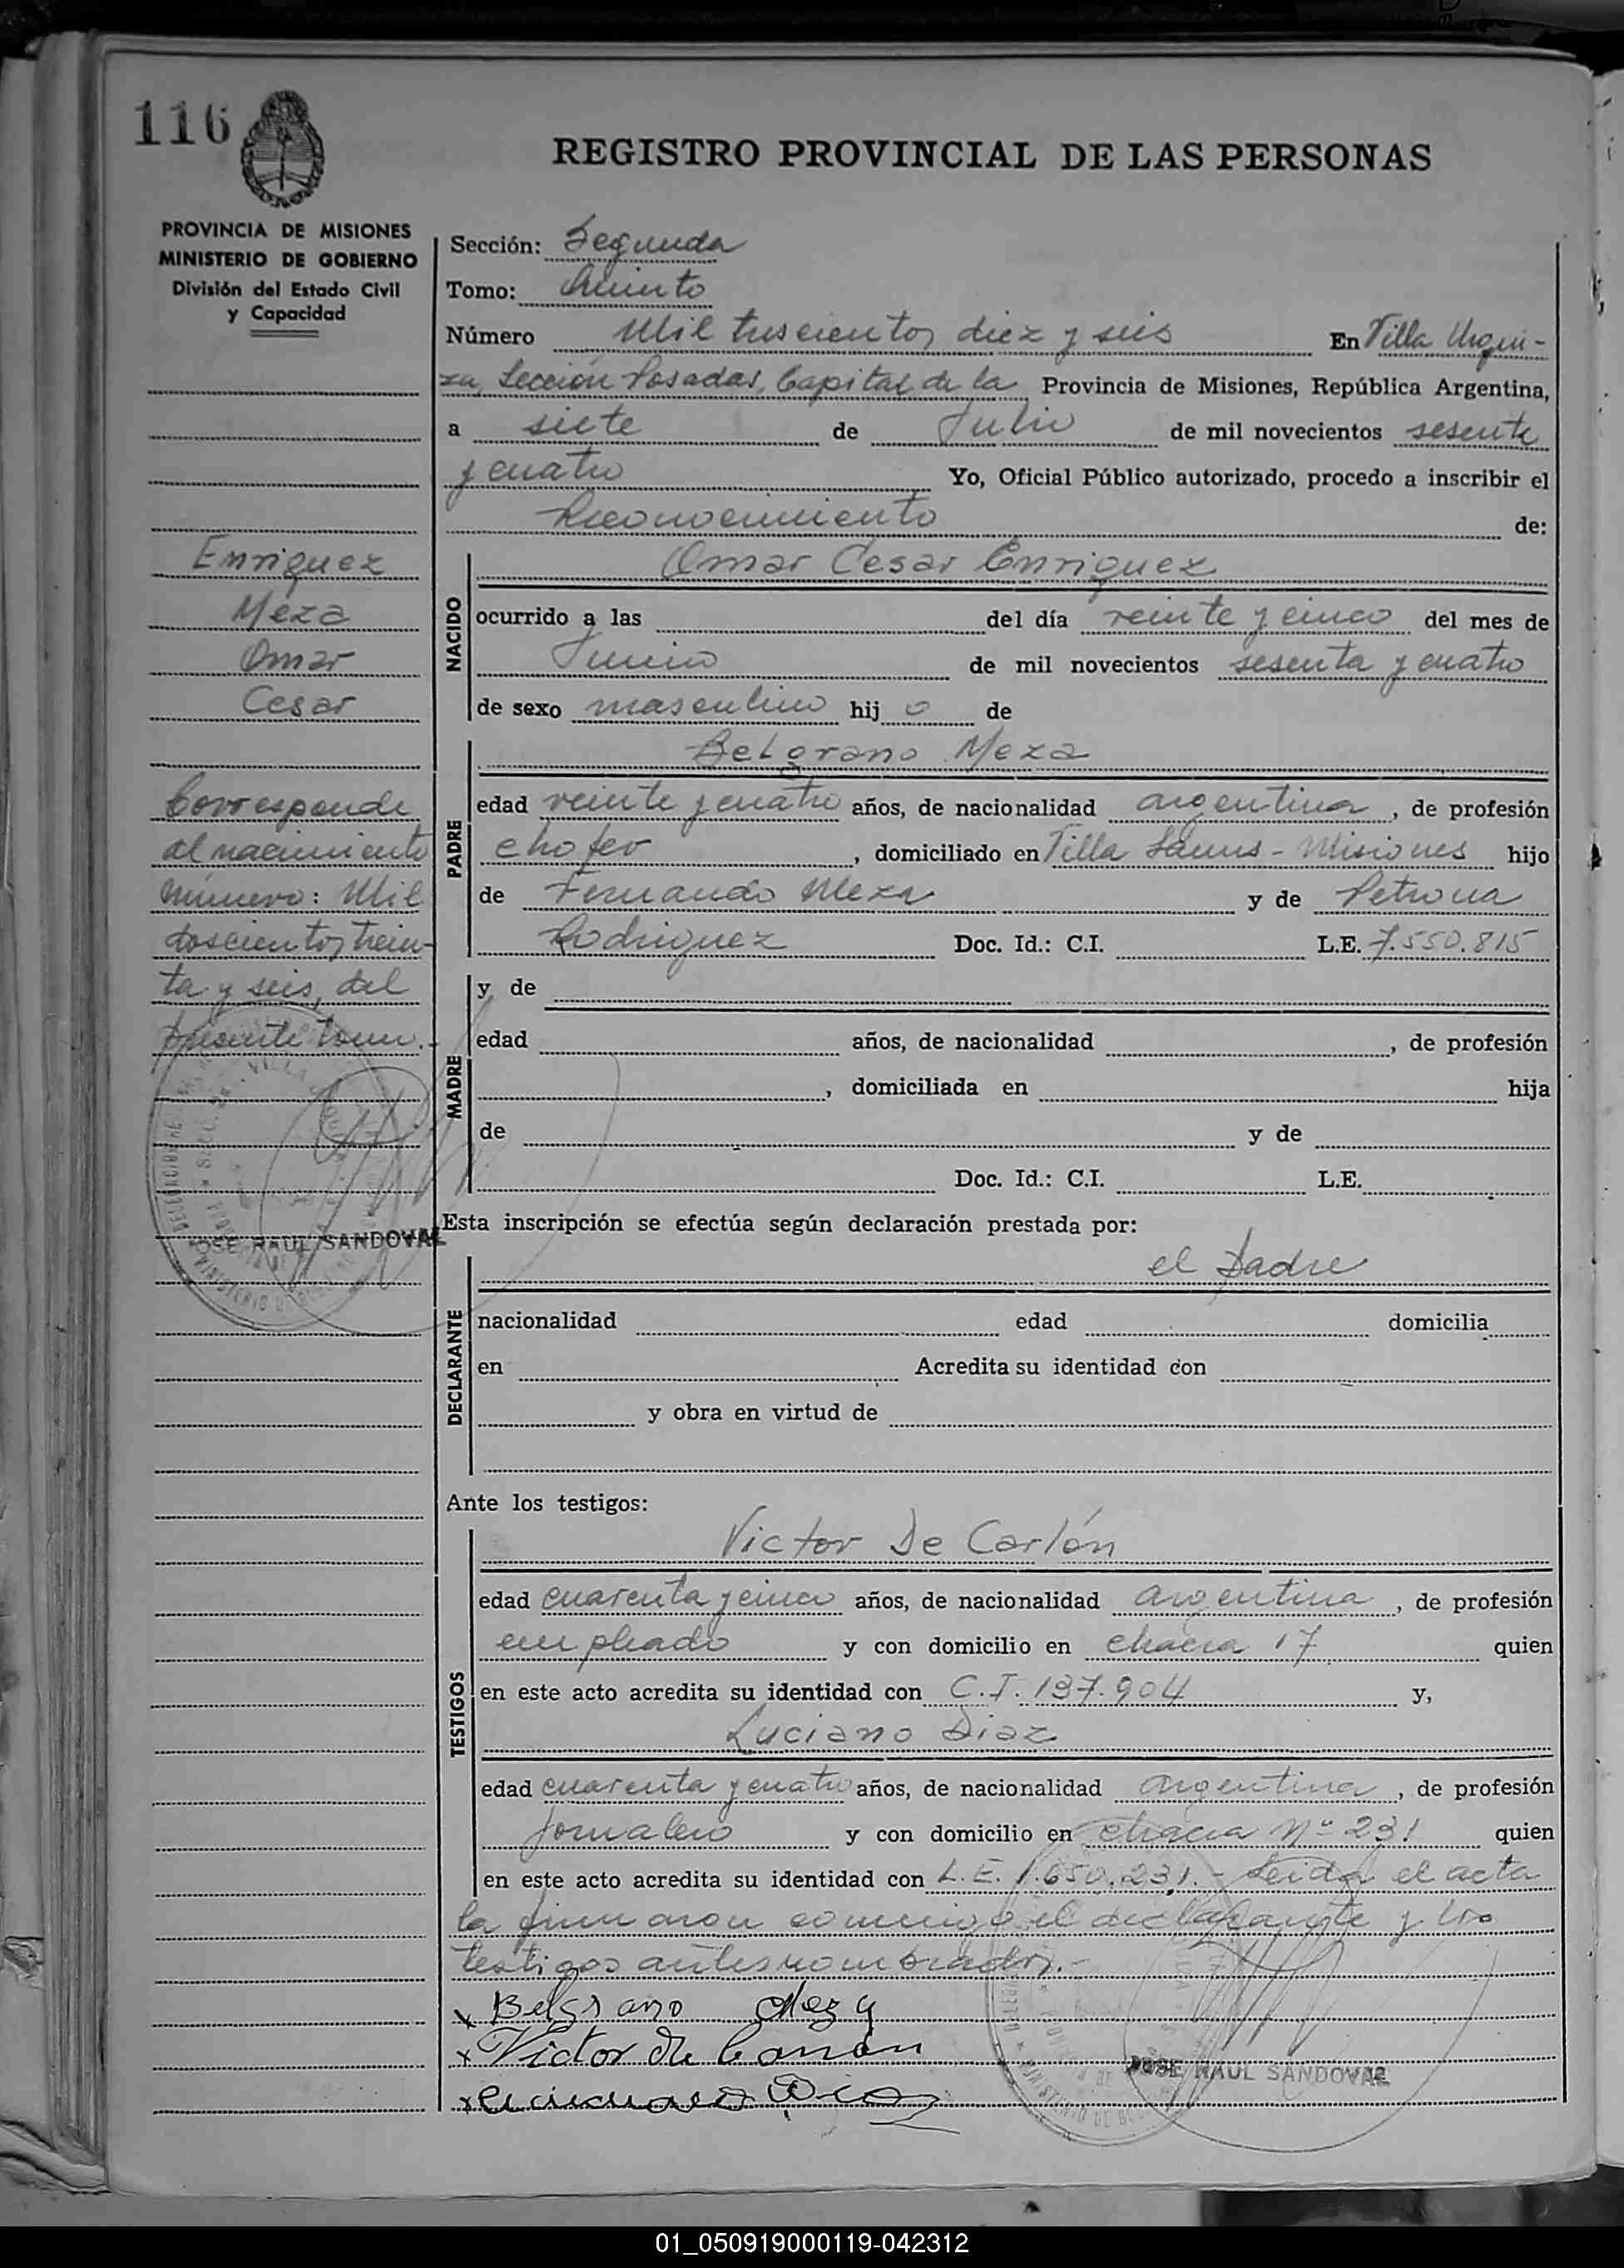 116
REGISTRO PROVINCIAL DE LAS PERSONAS
PROVINCIA DE MISIONES
MINISTERIO DE GOBIERNO
División del Estado Civil
y Capacidad
Sección: Segunda
Tomo: Quinto
Número Mil trescientos diez y seis En Villa Urqui-
za, Sección Posadas, Capital de la Provincia de Misiones, República Argentina,
a siete de Julio de mil novecientos sesenta
y cuatro Yo, Oficial Público autorizado, procedo a inscribir el
Reconocimiento de:
Enriquez
Meza
Omar
Cesar
Corresponde
al nacimiento
número: Mil
doscientos trein-
ta y seis, del
presente tomo.-
JOSE RAUL SANDOVAL
NACIDO
Omar Cesar Enriquez
ocurrido a las del día veinte y cinco del mes de
Junio de mil novecientos sesenta y cuatro
de sexo masculino hij o de
PADRE
Belgrano Meza
edad veinte y cuatro años, de nacionalidad argentina, de profesión
chofer, domiciliado en Villa Lanus - Misiones hijo
de Fernando Meza y de Petrona
Rodriguez Doc. Id.: C.I. L.E. 7.550.815
MADRE
y de
edad años, de nacionalidad , de profesión
, domiciliada en hija
de y de
Doc. Id.: C.I. L.E.
Esta inscripción se efectúa según declaración prestada por:
DECLARANTE
el padre
nacionalidad edad domicilia
en Acredita su identidad con
y obra en virtud de
Ante los testigos:
TESTIGOS
Victor De Carlón
edad cuarenta y cinco años, de nacionalidad argentina, de profesión
empleado y con domicilio en chacra 17 quien
en este acto acredita su identidad con C.I. 137.904 y,
Luciano Diaz
edad cuarenta y cuatro años, de nacionalidad argentina, de profesión
jornalero y con domicilio en chacra Nº 231 quien
en este acto acredita su identidad con L.E. 1.650.231.- Leida el acta
la firmaron conmigo el declarante y los
testigos antesnombrados.-
x Belgrano Meza
x Victor De
x Diaz
JOSE RAUL SANDOVAL
01_050919000119-042312